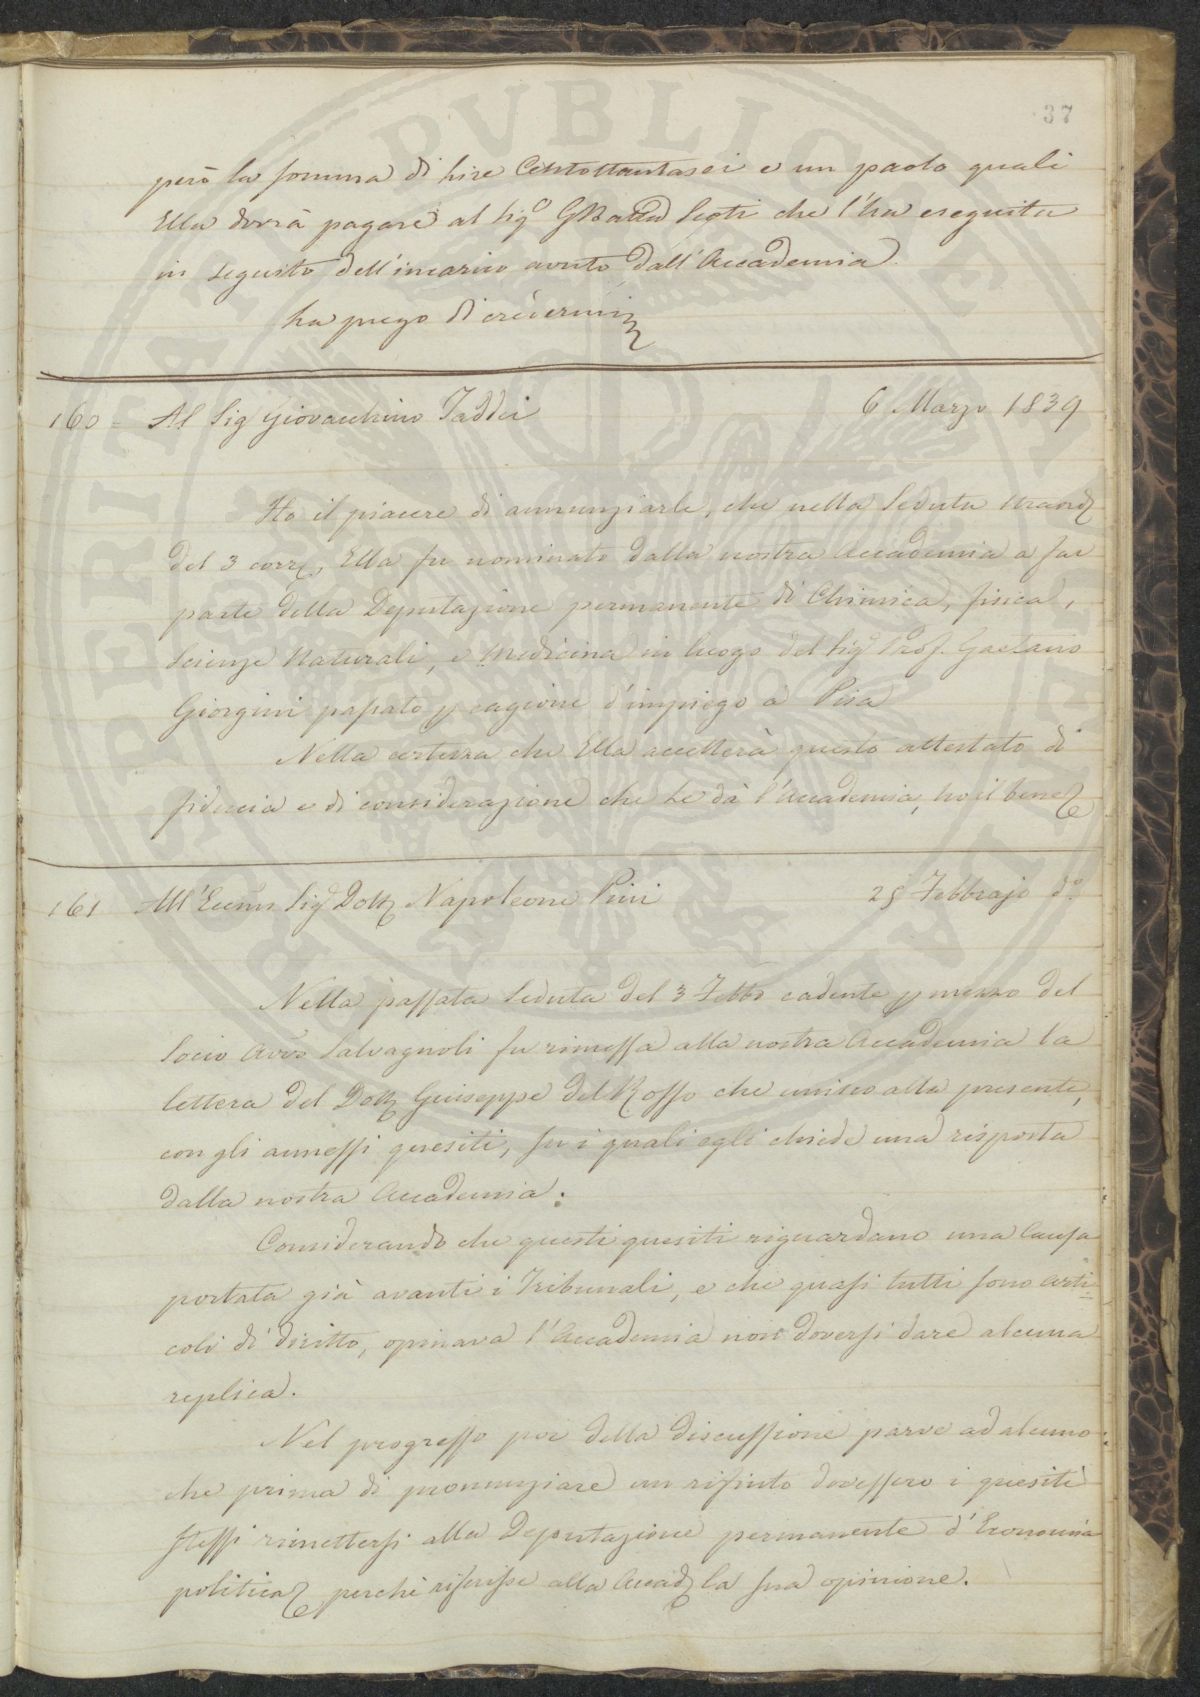 37
però la somma di Lire Centottantasei e un paolo quali
Ella dovrà pagare al Sigo GBatta Scoti che l'ha eseguita
in seguito dell'incarico avuto dall'Accademia
La prego di credermi
160 = Al Sig Giovacchino Taddei 6 Marzo 1839
Ho il piacere di annunziarle, che nella Seduta straord
del 3 corr, Ella fu nominato dalla nostra Accademia a far
parte della Deputazione permanente di Chimica, fisica,
Scienze Naturali, e Medicina in luogo del Sigr Prof. Gaetano
Giorgini passato p cagione d'impiego a Pisa
Nella certezza che Ella accetterà questo attestato di
fiducia e di considerazione che Le dà l'Accademia, ho il bene
161 All'Eccmo Sigr Dott Napoleone Pini 25 Febbrajo do.
Nella passata Seduta del 3 Febbo cadente p mezzo del
Socio Avvo Salvagnoli fu rimessa alla nostra Accademia la
lettera del Dott Giuseppe Del Rosso che unisco alla presente,
con gli annessi quesiti, su i quali egli chiede una risposta
dalla nostra Accademia.
Considerando che questi quesiti riguardano una Causa
portata già avanti i Tribunali, e che quasi tutti sono arti=
coli di diritto, opinava l'Accademia non doversi dare alcuna
replica.
Nel progresso poi della discussione parve ad alcuno
che prima di pronunziare un rifiuto dovessero i quesiti
stessi rimettersi alla Deputazione permanente d'Economia
politica perchè riferisse alla Accad la sua opinione.